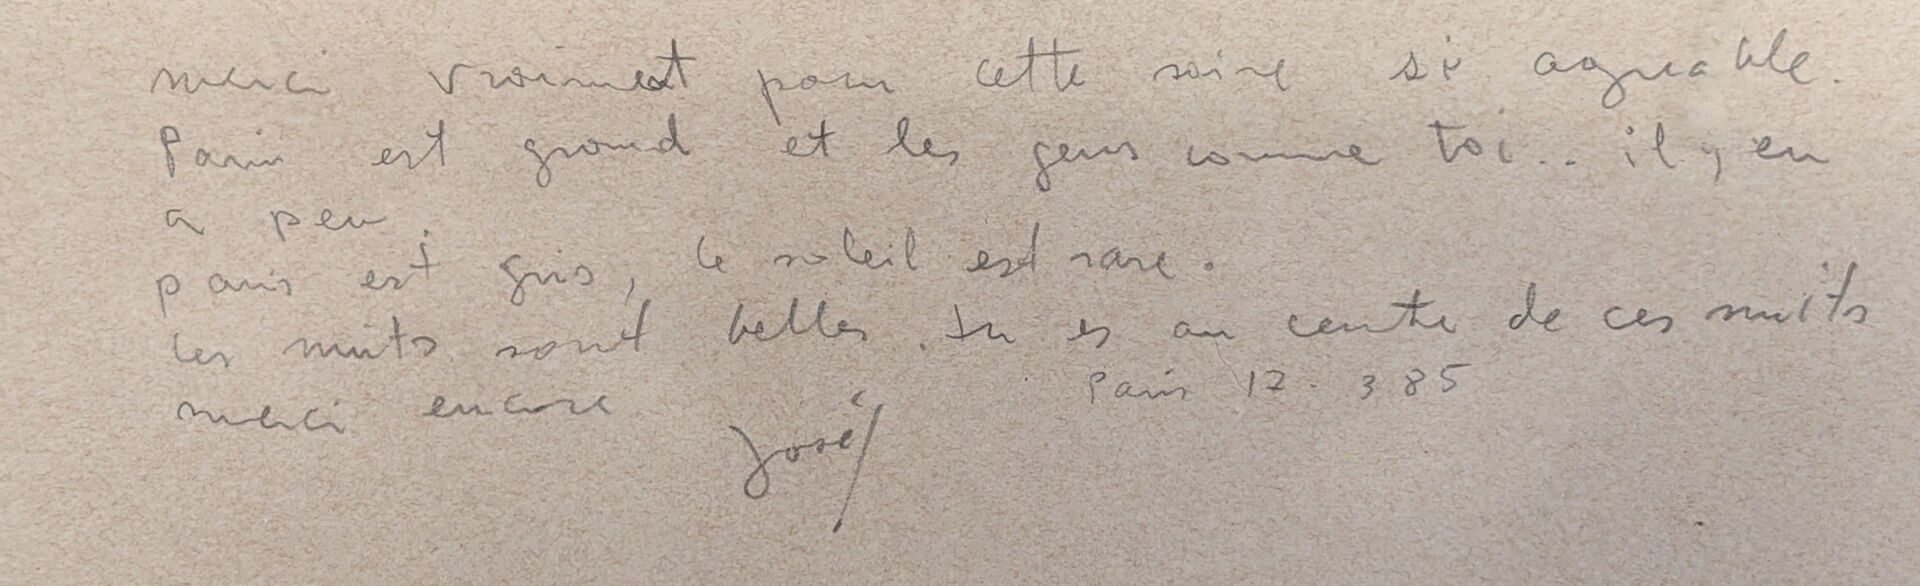 merci vraiment pour cette soirée si agréable.
Paris est grand et les gens comme toi.. il y en
a peu.
paris est gris, le soleil est rare.
les nuits sont belles. tu es au centre de ces nuits
merci encore
Paris 12.3 85
José